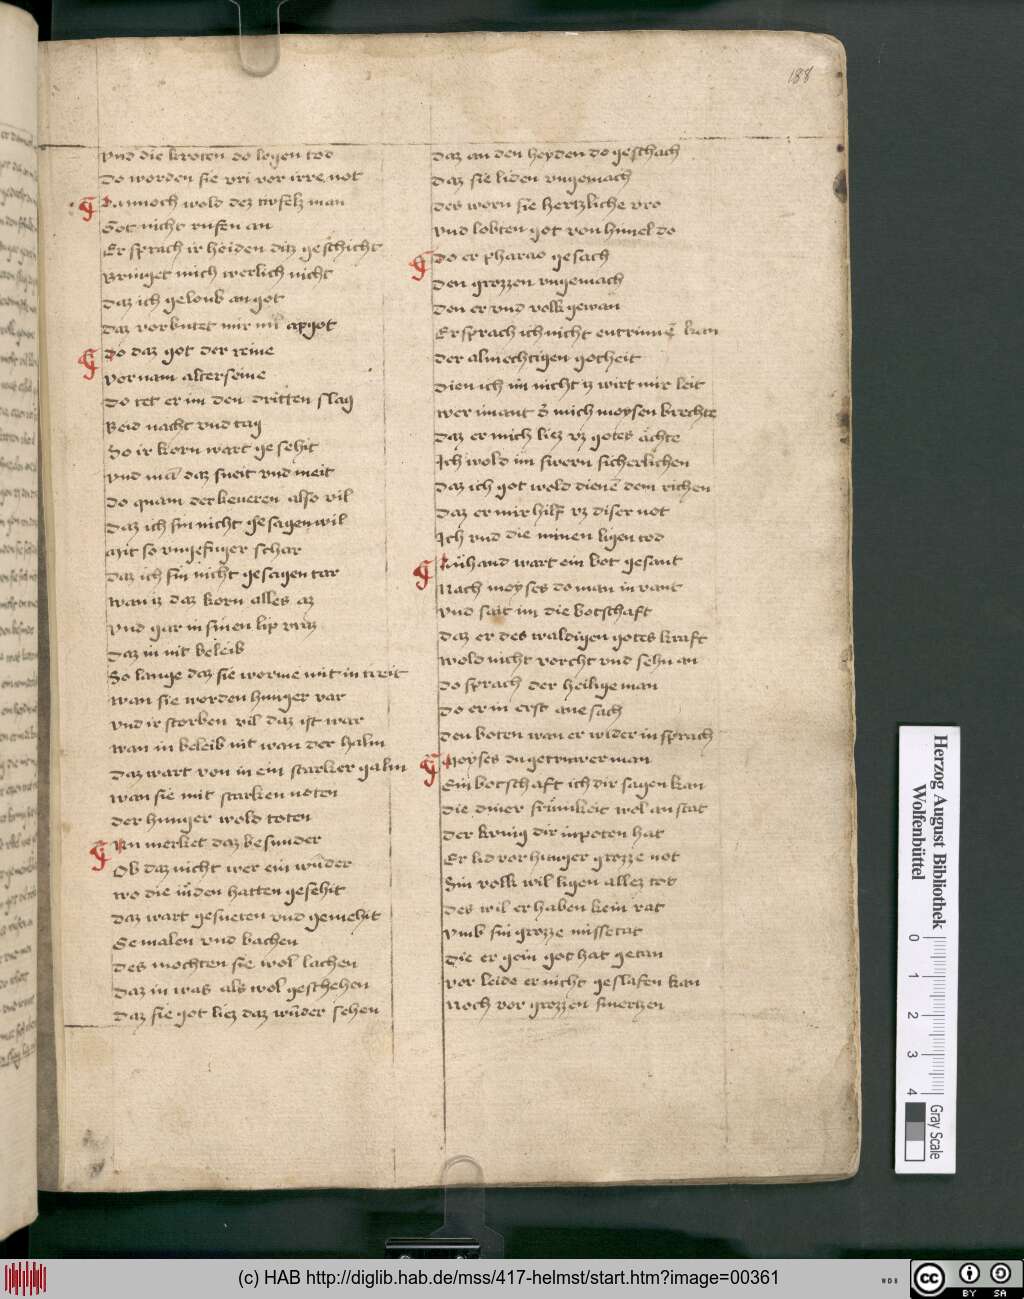 188
vnd die kroten do legen tod
Do worden sie vri vor irre not
Dannoch wold dez tivfelz man
Got nicht rufen an
Er sprach ir heiden ditz geschicht
Bringet mich werlich nicht
Daz ich geloub an got
Daz vorbutet mir min apgot
Do daz got der reine
vornam alterseine
Do tet er im den dritten slag
Beid nacht vnd tag
So ir korn wart gesehit
vnd man daz sneit vnd meit
do quam der keueren also vil
Daz ich sin nicht gesagen wil
Mit so vngefuger schar
Daz ich sin nicht gesagen tar
wan iz daz korn allez az
vnd gar in sinen lip vraz
Daz in nit beleib
So lange daz sie worme mit in treit
wan sie worden hunger var
vnd ir storben vil daz ist war
wan in beleib nit wan der halm
Daz wart von in ein starker galm
wan sie mit starken noten
der hunger wold toten
Nu merket daz besunder
Ob daz nicht wer ein wunder
wo die iuden hatten gesehit
daz wart gesneten vnd gemehit
Gemalen vnd bachen
Des mochten sie wol lachen
Daz in was als wol geschehen
Daz sie got liez daz wunder sehen
Daz an den heyden do geschach
Daz sie liden vngemach
Des worn sie hertzliche vro
vnd lobten got von himel do
Do er pharao gesach
Den grozzen vngemach
Den er vnd volk gewan
Er sprach ich nicht entrinnen kan
der almechtigen gotheit
Dien ich im nicht iz wirt mir leit
wer imant der mich moysen brechte
Daz er mich liez vz gotes achte
Ich wold im swern sicherlichen
Daz ich got wold dienen dem richen
Daz er mir hilf vz diser not
Ich vnd die minen ligen tod
Zuhand wart ein bot gesant
Nach moyses do man in vant
vnd sait im die botschaft
Daz er des waldigen gotes kraft
wold nicht vorcht vnd sehn an
do sprach der heilige man
do er in erst ane sach
den boten wan er wider in sprach
Moyses du getruwer man
Ein botschaft ich dir sagen kan
die diner frumkeit wol an stat
der kunig dir inpoten hat
Er lid vor hunger grozze not
Sin volk wil ligen allez tot
des wil er haben kein rat
vmb sin grozze missetat
die er gein got hat getan
vor leide er nicht geslafen kan
Noch vor grozzen smertzen
Herzog August Bibliothek
Wolfenbüttel
0 1 2 3 4
Gray Scale
(c) HAB http://diglib.hab.de/mss/417-helmst/start.htm?image=00361
WDB
cc BY SA